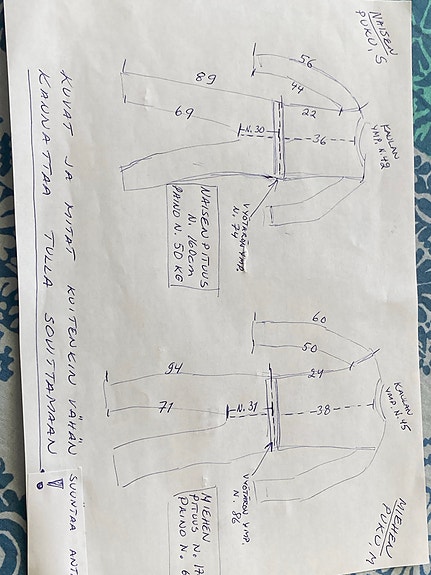 NAISEN
PUKU, S
56
44
89
69
22
N. 30
36
KAULAN
YMP. N. 42
VYÖTÄRÖN YMP.
N. 74
NAISEN PITUUS
N. 160cm
PAINO N. 50 KG
MIEHEN
PUKU, M
60
50
94
71
24
N. 31
38
KAULAN
YMP. N. 45
VYÖTÄRÖN YMP.
N. 86
MIEHEN
PITUUS N. 17
PAINO N. 6
KUVAT JA MITAT KUITENKIN VÄHÄN SUUNTAA ANT
KANNATTAA TULLA SOVITTAMAAN!